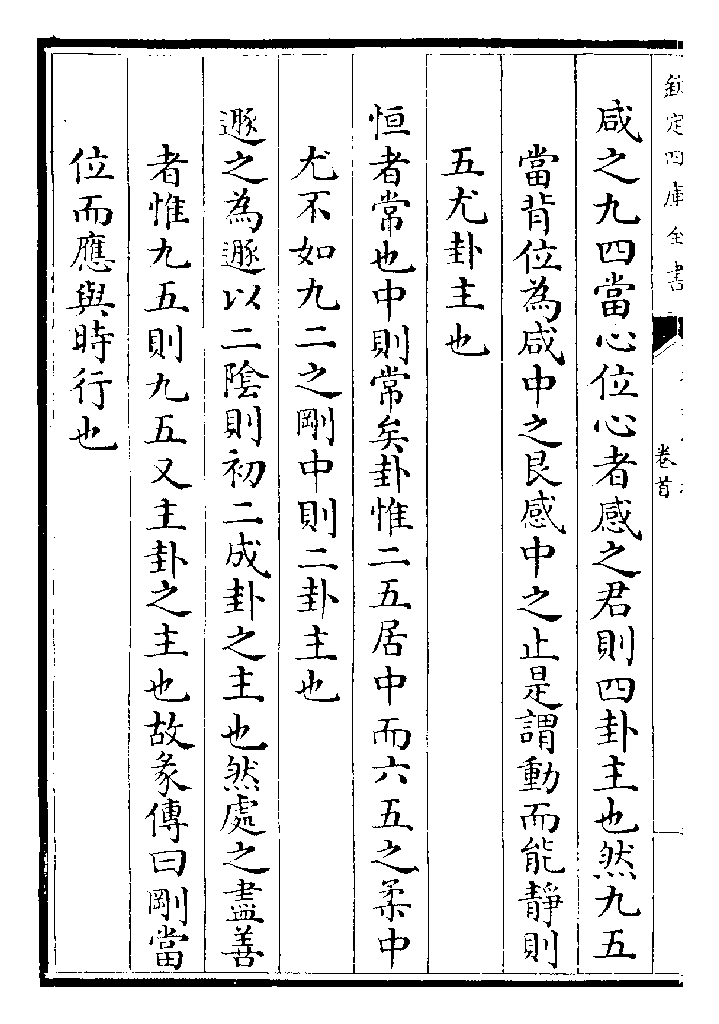 欽定四庫全書
卷首
咸之九四當心位心者感之君則四卦主也然九五
當背位為咸中之艮感中之止是謂動而能靜則
五尤卦主也
恒者常也中則常矣卦惟二五居中而六五之柔中
尤不如九二之剛中則二卦主也
遯之為遯以二陰則初二成卦之主也然處之盡善
者惟九五則九五又主卦之主也故彖傳曰剛當
位而應與時行也